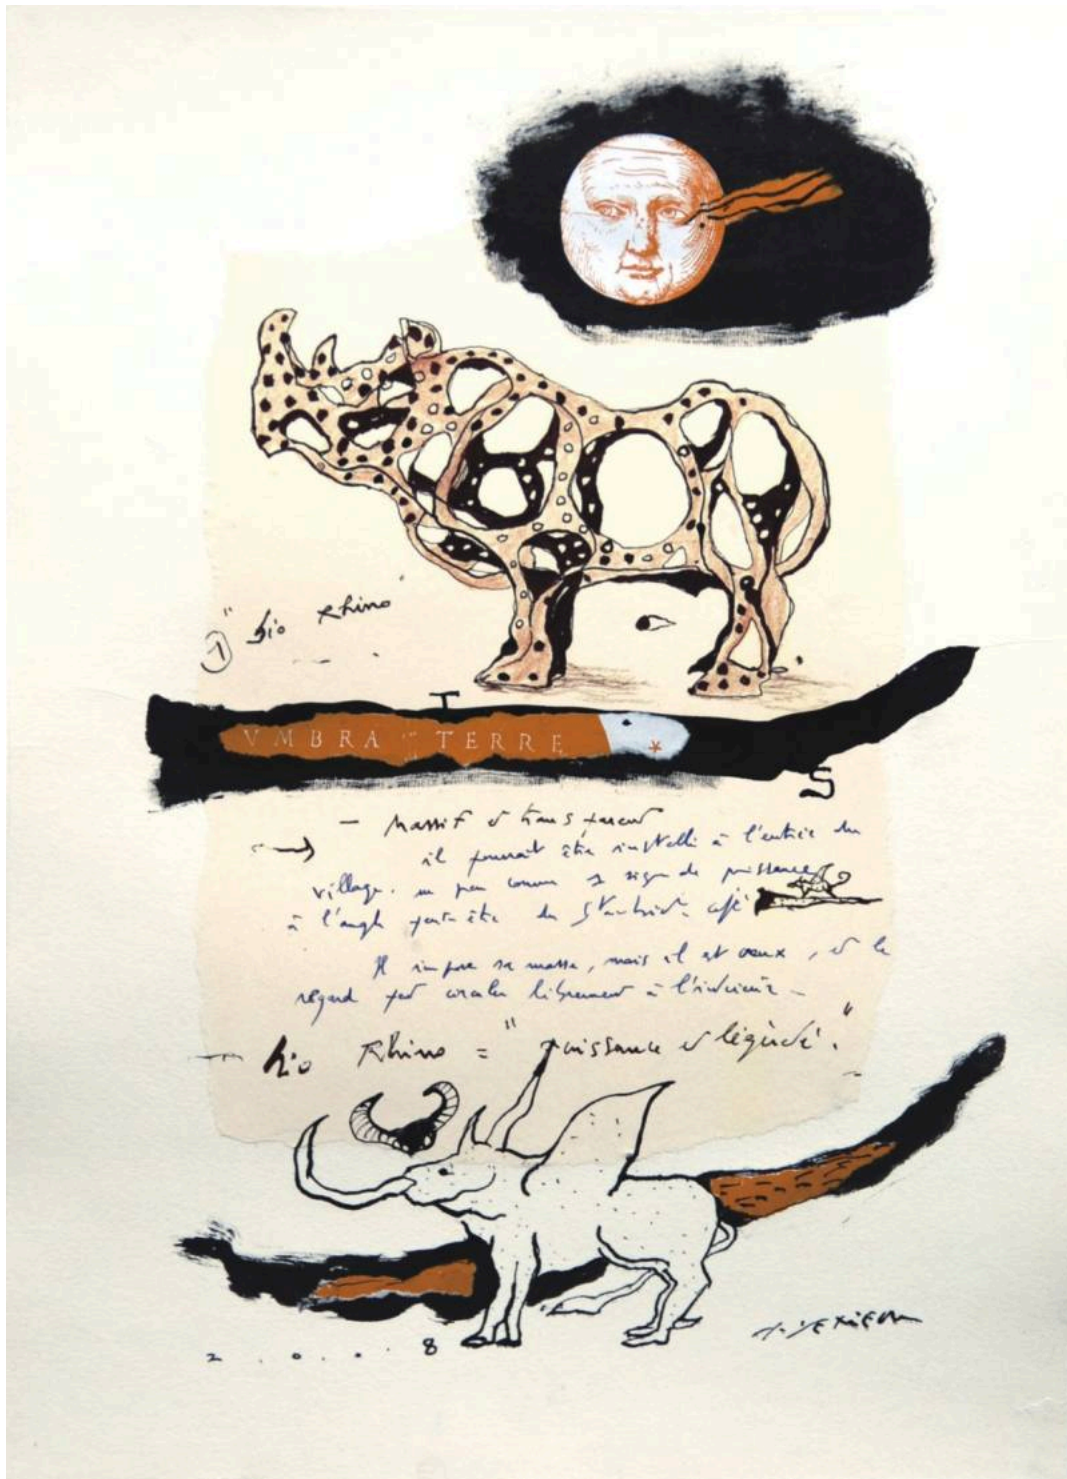 ① "bio Rhino
T
VMBRA TERRE
S
— Massif et transparent
→ il pourrait être installé à l'entrée du
village. un peu comme signe de puissance
à l'angle peut-être du café
Il impose sa masse, mais il est creux, et le
regard peut circuler librement à l'intérieur —
bio Rhino = "Puissance et légèreté."
2 . 0 . 0 . 8